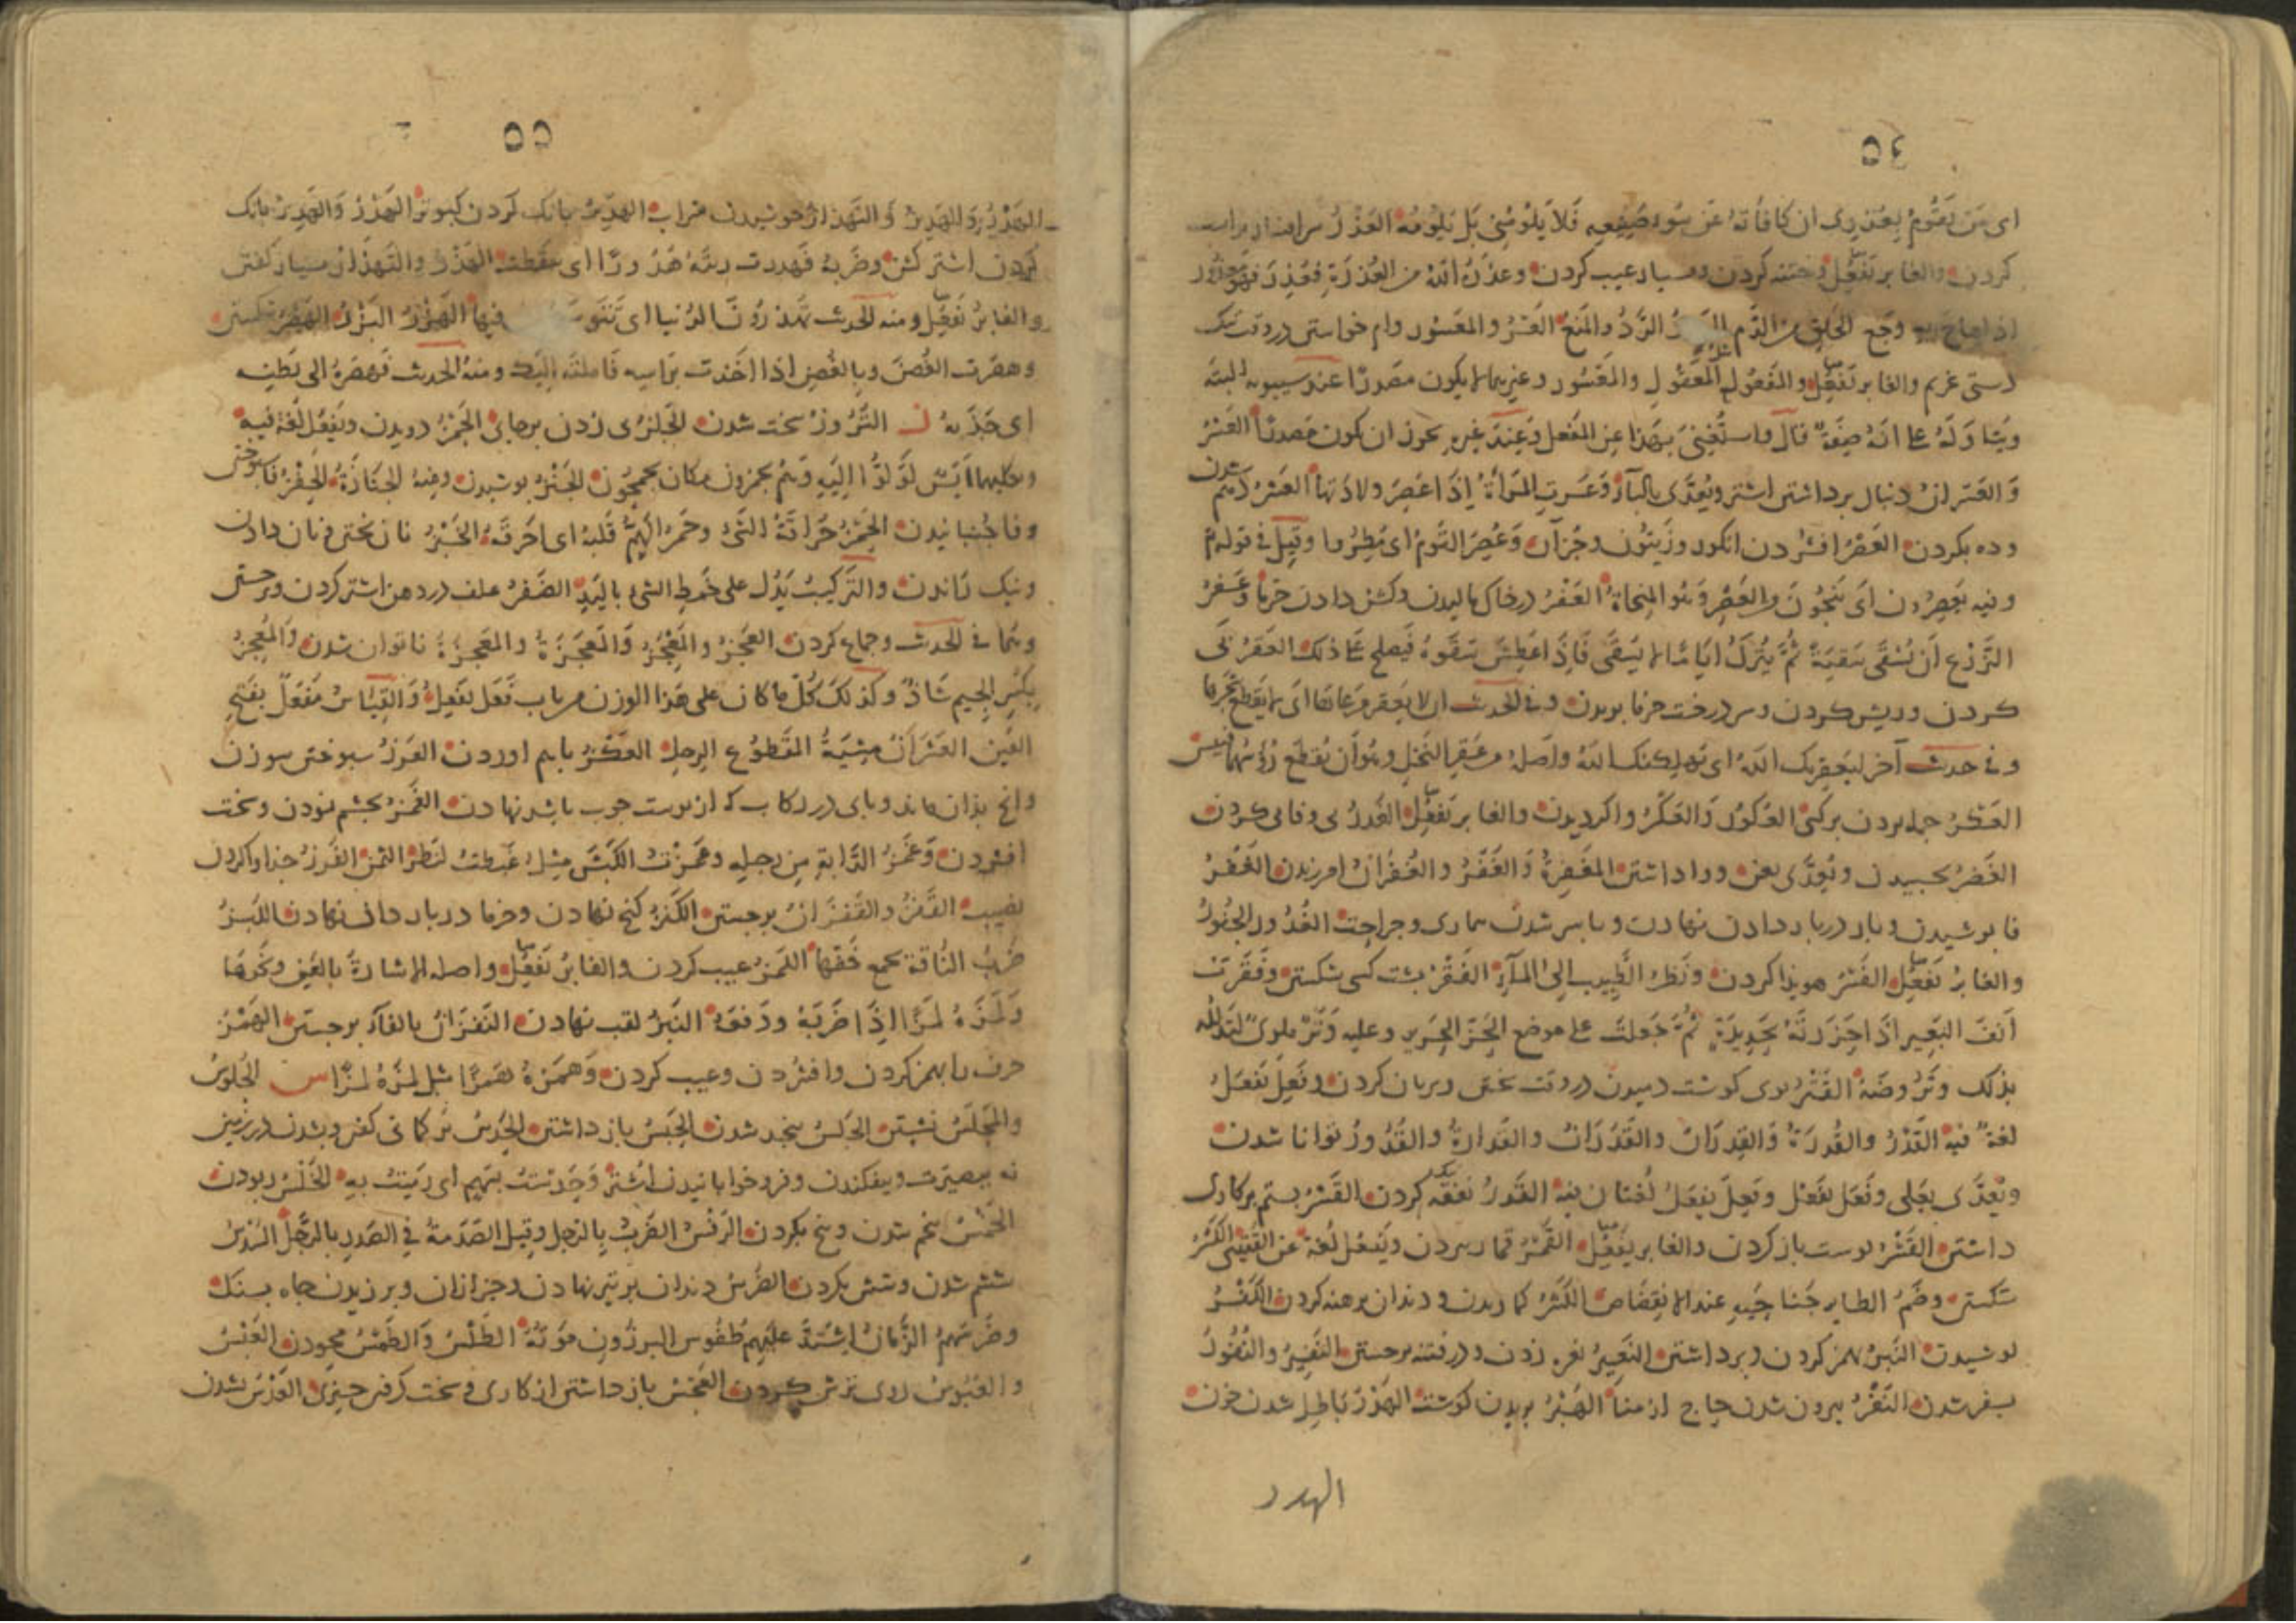 ٥٤
اى مَن يَقُومُ بِعُذرِى ان كافأتهُ عَن سُوء صَنِيعِه فَلاَ يَلُومُنِى بَل يَلُومُهُ العَذْرُ
كردن والغابر تَفعُِل وختنه كردن وبسيار عيب كردن وعذَرهُ اللهُ من العُذرَةِ فعُذِرَ فهو
اذا هاج به وجع الحلق من الدَّم الرَّدُّ والمَنعُ العَسْرُ والمَعسُور وام خواستن در وقت تنك
دستى غريم والغابر تَفعُِل والمَفعُول المَعقُول والمَعسُور وغيرهما لا يكون مصدرًا عند سيبويه البتة
ويتاوَلهُ على انّهُ صِفَةٌ قال واستُغنِىَ بهَذا عن المَفعل وَعِندَ غيره يجوز ان يكون مَصدرًا العَسْرُ
وَالعَسَرانُ دنبال برداشتن اشتر ويُعَدَّى بالبآء وَعَسَرتِ المَرأةُ اِذَا عَسِرَ ولادَتها العَشرُ دهم شدن
وده بكردن العَصْرُ افشردن انكور وزَيتُون وجُزآن وَعُصِرَ القَومُ اى مُطِرُوا وقيل فى قوله تع
وفيه يَعصِرُون اى يَنجُونَ مِن العَصْرِ وَهُو المنجاةُ العَفْرُ در خاك ماليدن وكشن دادن خرما وعَفرُ
الزَّرع اَن يُسْقَى سَقيَةً ثُمَّ يُترَكُ ايّامًا لا يُسقَى فَاِذَا عَطِشَ سَقَوهُ فيَصلح عَلى ذلك العَقرُ پى
كردن وريش كردن وسر درخت خرما بريدن وفى الحديث ان لا يَعقر مَرعاهَا اى لا يَقطع شجرها
وفى حديث آخر ليَعقِرنك اللهُ اى يُهلِكنك اللهُ واَصلهُ من عَقرِ النَّخلِ وهُو اَن تُقطَع رُؤُسُها فتيبس
العَكْرُ حمله بردن بر كسى العُكُورُ وَالعَكْرُ واكرديدن والغابر تَفعُِل الغَدرُ بى وفائى كردن
الغَضرُ بچسبيدن ويُعَدَّى بعن ووا داشتن المَغفِرةُ وَالغَفْرُ والغُفْرَانُ امرزيدن الغَفْرُ
فا پوشيدن وبار در باردان نهادن وبا سر شدن بيمارى وجراحت الغُدور الجُفُورُ
والغابرُ تَفعُِل الفَسْرُ هويدا كردن ونَظَرُ الطَّبيب الىَ المآءِ الفَقْرُ پشت كسى شكستن وفَقَرتُ
اَنفَ البَعير اذَا حَزَزتَهُ بِحَدِيدَةٍ ثُمَّ جَعلتَ على موضع الحَزِّ الجَرير وعليه وَتَرٌ ملوىٌّ لتذلّله
بذلك وتَرُوضَهُ القَتْرُ بوى كوشت دميدن در وقت پختن وبريان كردن وفَعِلَ يَفعَلُ
لغةٌ فيه القَدْرُ والقُدرَةُ والقِدرَانُ والقَدَرَانُ والقَدارةُ والقُدُورُ توانا شدن
ويُعَدَّى بعَلى وفَعَل يَفعُل وفَعِلَ يَفعَلُ لُغتان فيه القَدرُ تَنك كردن القَسْرُ بستم بر كارى
داشتن القَشْرُ پوست باز كردن والغابر يَفعُِل القَمْرُ قمار بردن ويَفعُل لُغة عن القُتيبى الكَسْرُ
شكستن وضَمُّ الطاير جَناحَيهِ عند الانقِضَاض الكَشْرُ دندان برهنه كردن الكَفْرُ
پوشيدن النَّبرُ همز كردن وبرداشتن النَّعيرُ نعره زدن ودر فتنه برجستن النَّفيرُ والنُّفُورُ
بسفر شدن النَّفْرُ بيرون شدن حاج از منىً الهَبْرُ بريدن كوشت الهَدْرُ باطل شدن خون
الهدر
٥٥
الهَدْرُ وَالهَديرُ وَالتَّهْدَارُ جوشيدن شراب الهديرُ بانك كردن كبوتر الهَدْرُ وَالهَديرُ بانك
كردن اشتر كشن وضَربهُ فَهدرت رئتُهُ هُدُورًا اى سَقَطَت الهَذْرُ والتَّهذارُ بسيار كفتن
والغابرُ تَفعُِل ومنه الحديث تَهذرُونَ الدُّنيا اى تَتَوسَّـ فيها الهَزْرُ البَزْرُ الهَصْرُ شكستن
وهصَرت الغُصنَ وبالغُصنِ اذا اخَذتَ براسِه فَاَملتَهُ اليك ومنهُ الحديث فَهصَرهُ الى بَطنِه
اى جَذَبهُ ز التُّرُوزُ سخت شدن الجَلزُ پى زدن بر جاى الجَمْزُ دويدن ويَفعُل لُغة فيه
وعليهما لَوَلَّوْا اِلَيهِ وَهُم يَجمِزون مكان يجمحُون الجَنْزُ پوشيدن ومنهُ الجَنَازَةُ الحَفْزُ فا سوختن
وفا جُنبانيدن الحَمْزُ حَرَافَةُ الشَّىْ وحَمَزَ الهَمُّ قَلبهُ اى اَحرَقَهُ الخَبْزُ نان پختن ونان دادن
ونيك راندن والتَّركيبُ يَدُلّ على خَبطِ الشئ باليَدِ الضَفْزُ علف در دهن اشتر كردن وجستن
وبهما فى الحديث وجماع كردن العَجْزُ والمَعْجَزُ وَالمَعجَزَةُ والمَعجِزَةُ ناتوان شدن وَالمَعجِزُ
بكَسرِ الجيم شَاذٌّ وكذلكَ كُلُّ مَا كان على هَذا الوزن من باب فَعَل يَفعِلُ وَالقِيَاسُ مَفْعَلٌ بفَتحِ
العَين العَشَزَانُ مِشيَةُ المَقطوُعِ الرِجلِ العَكْزُ باهم اوردن الغَرزُ سپوختن سوزن
وانچ بذان ماند وپاى در ركاب كه از پوست چوب باشد نهادن الغَمْزُ بچشم نمودن وسخت
افشردن وَغَمْزُ الدَّابةِ مِن رِجلِه وغمَزْتُ الكَبْشَ مِثلُ غَبَطتُ لنَظرِ السَّمن الفَرزُ جذا واكردن
نصيب القَفْزُ والقَفَزَانُ برجستن الكَنْزُ كنج نهادن وخرما در باردان نهادن اللَّبزُ
ضَربُ النَّاقة بجمع خُفّها اللمزُ عيب كردن والغابرُ تَفعُِل واصله الاشارةُ بالعَين ونَحوهَا
وَلمَزَهُ لَمزًا اِذَا ضَرَبَهُ ودَفعَهُ النَبزُ لقب نهادن النَّفَزَانُ بالفآء برجستن الهَمْزُ
حرف با همز كردن وافشردن وعيب كردن وَهمَزهُ هَمزًا مثل لَمزَهُ لَمزًا س الجُلُوسُ
والمَجلَسُ نشستن الجَلسُ بنجد شدن الحَبسُ باز داشتن الحَدسُ بر كمانى كفتن وبشدن در زمين
نه ببصيرت وبيفكندن وفرو خوابانيدن اشتر وَحَدَسْتُ بِسَهمٍ اى رَمَيتُ بِهِ الخَلْسُ ربودن
الخَمْسُ پنجم شدن وپنج يكردن الرَّفْسُ الضَّربُ بِالرّجل وقيل الصَّدمةُ فى الصَدرِ بالرِّجل السَّدْسُ
ششم شدن وشش يكردن الضَّرسُ دندان بر تير نهادن وجز ازان وبر زيدن چاه بسنك
وضَرسَهمُ الزَّمانُ اِشتَدَّ عَلَيهِم طُفُوس البِرذَونِ مَوتُهُ الطَّلسُ وَالطَّمسُ محو كردن العَبْسُ
والعُبُوسُ روى ترش كردن العَجْسُ باز داشتن از كارى وسخت كرفتن چيزى العَدْسُ شدن